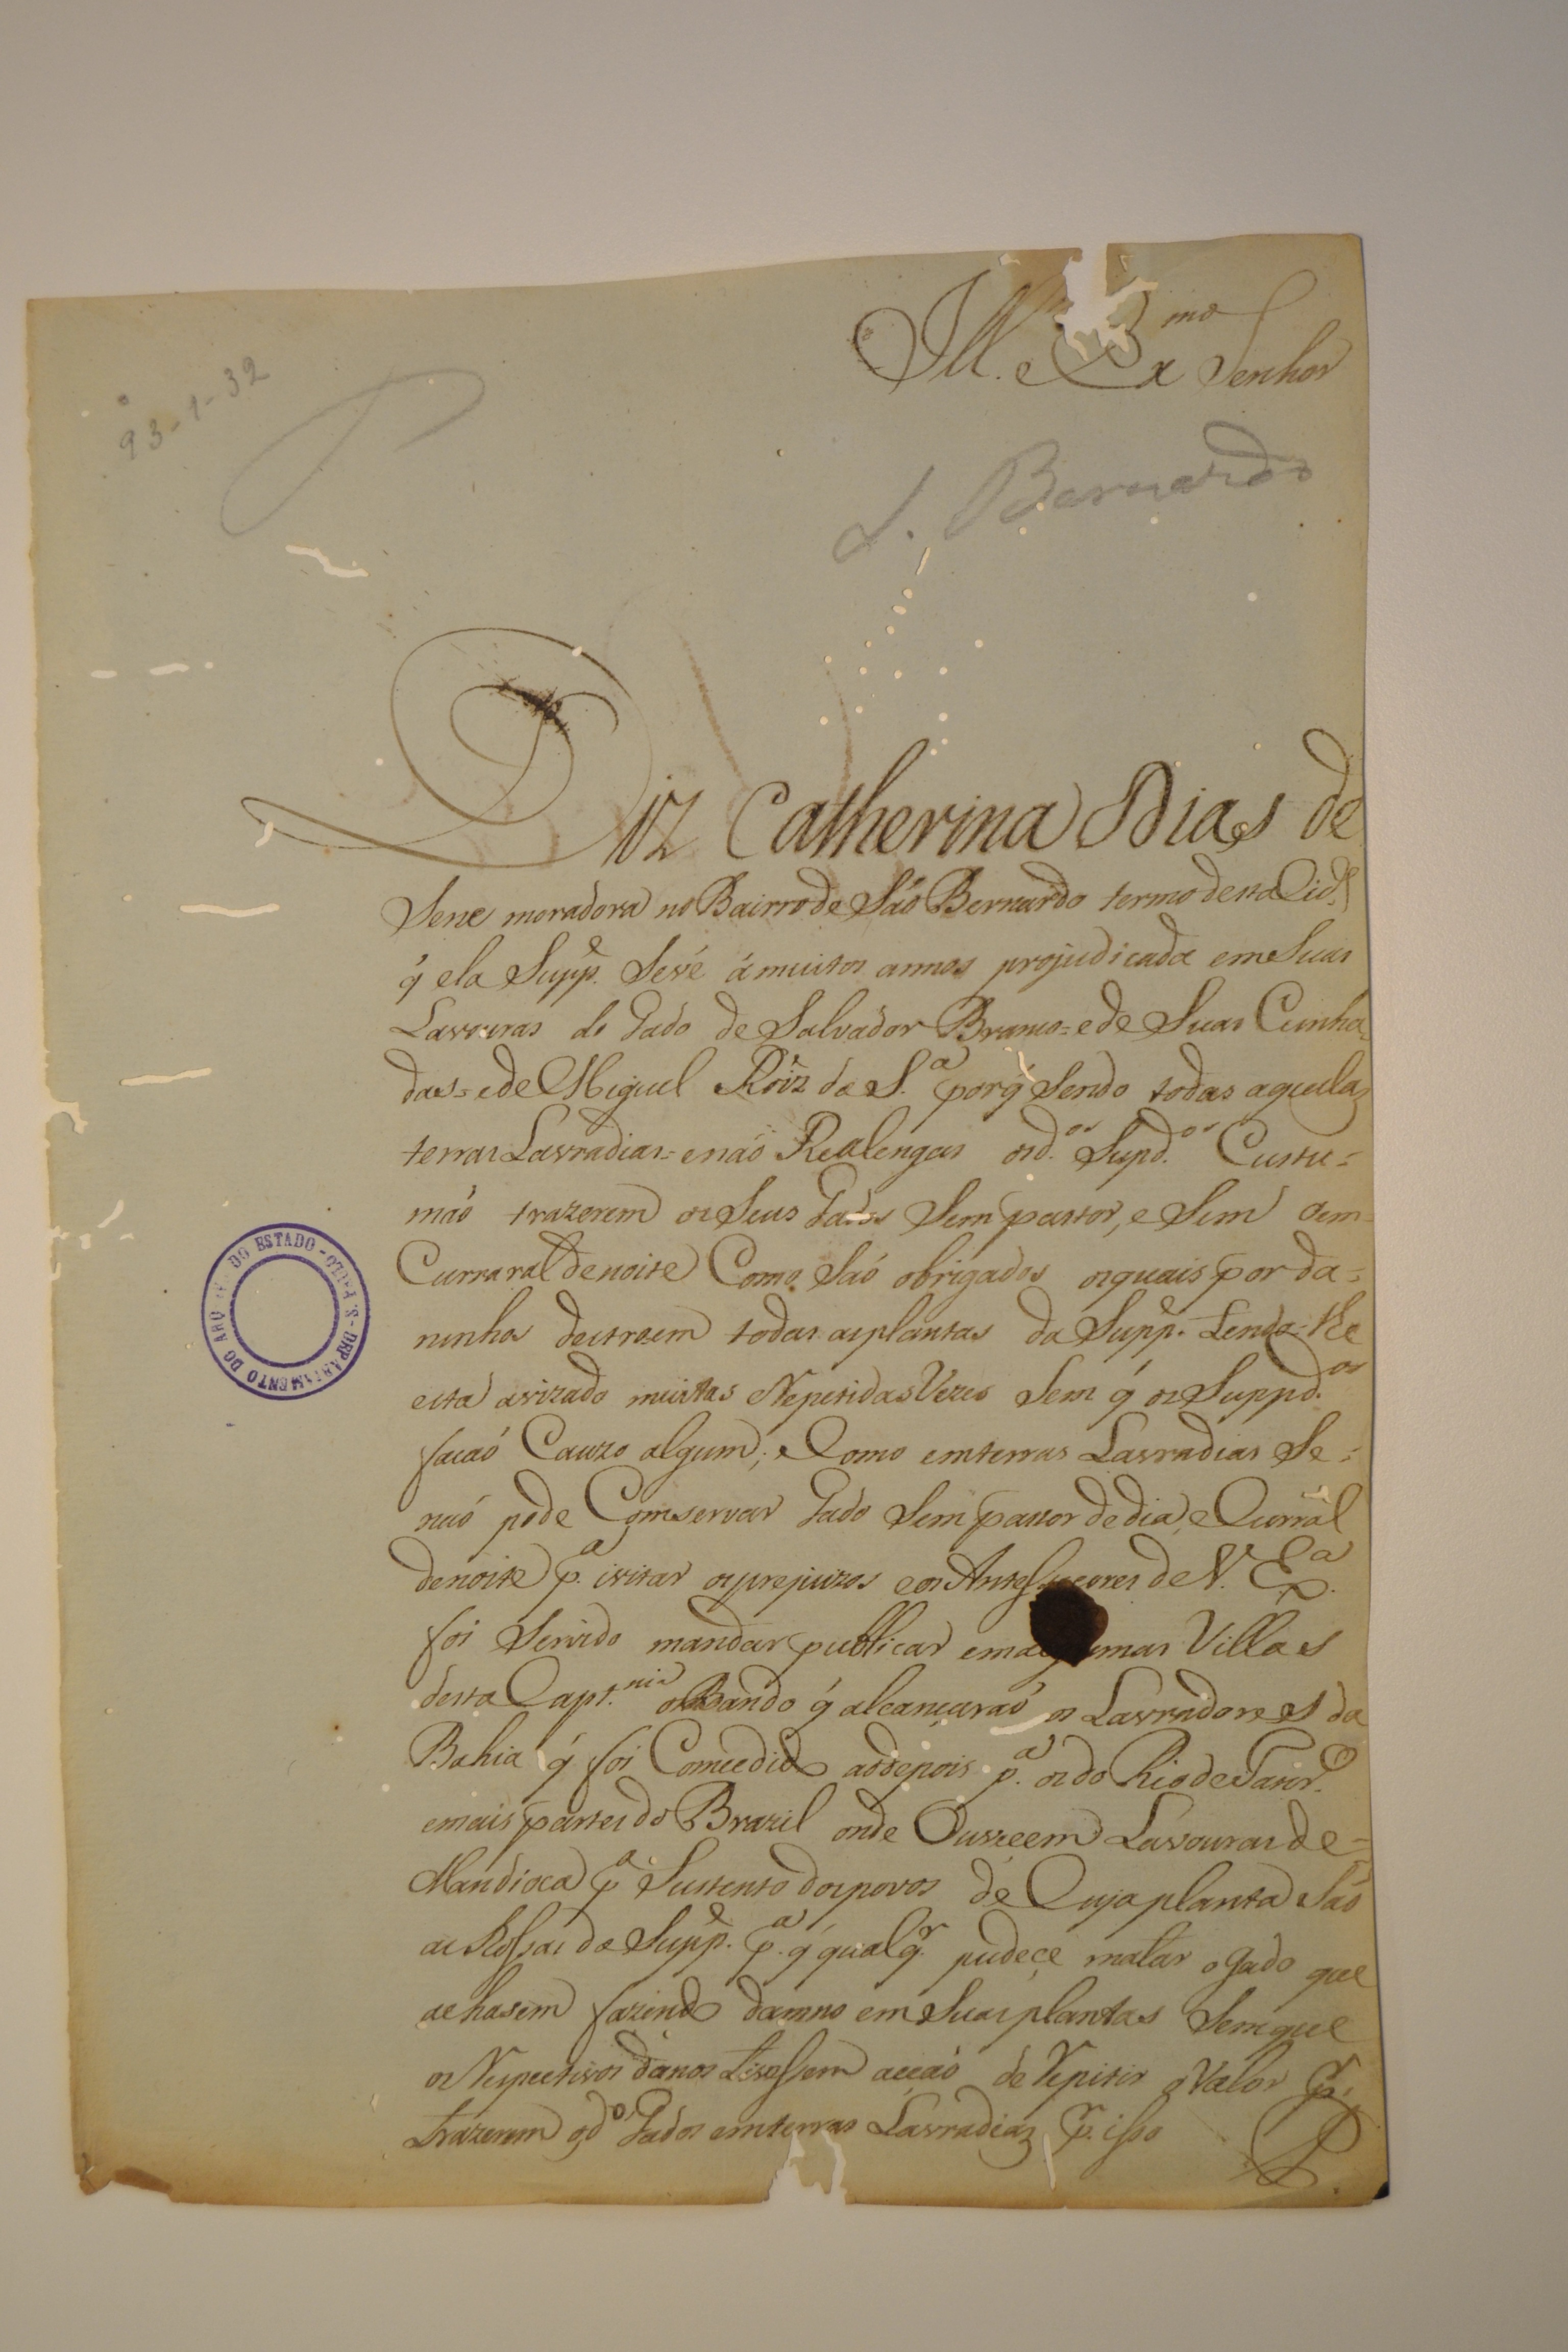 Ill. e Ex.mo Senhor
93-1-32
S. Bernardo
Diz Catherina Dias de
Sene moradora no Bairro de São Bernardo termo desta Cid.e
q̃ ela Supp.e Sevé á muitos annos projudicada em Suas
Lavouras do Gado de Salvador Branco = e de Suas Cunha-
das = e de Miguel Roiz da S.a porq̃ Sendo todas aquelas
terras Lavradias = enaõ Realengas osd.os Supd.os Custu=
maõ trazerem os Seus Gados Sem pastor, e Sem o em
Curraral denoite Como Saõ obrigados os quais por da=
ninhos destroem todas as plantas da Supp.e Tendo-lhe
esta avizado muitas e Repetidas Vezes Sem q̃ os Suppd.os
facaõ Cauzo algum; e Como em terras Lavradias Se=
naõ pode Comservar Gado Sem pastor de dia, e Curral
denoite p.a ivitar os prejuizos e os Antessecores de V. Ex.a
foi Servido mandar publicar em algumas Villas
desta Capt.nia o Bando q̃ alcançaraõ os Lavradores da
Bahia q̃ foi Comcedido addepois p.a os do Rio de Janr.o
e mais partes do Brazil onde Ouvecem Lavouras de=
Mandioca p.a Sustento dos povos de Cuja planta Saõ
as Rossas da Supp.e p.a q̃ qualq.r pudece matar o gado que
achasem fazendo damno em Suas plantas Sem que
os Respectivos danos tivessem acçaõ de Repitir o Valor p.r
trazerem os d.os Gados em terras Lavradias p.r isso
P.
DEPARTAMENTO DO ARQ DO ESTADO - S. PAULO -